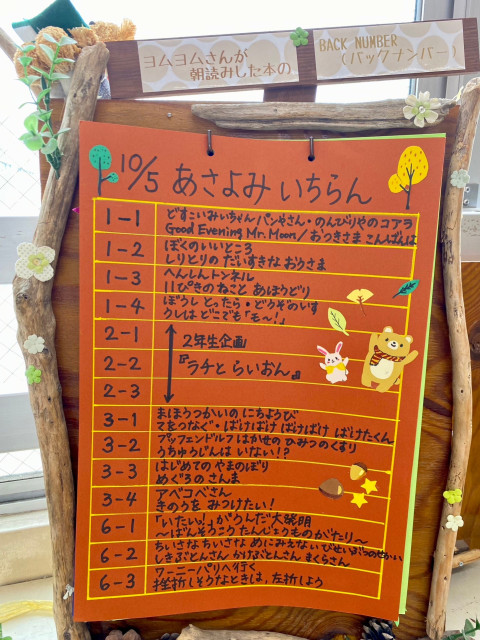 ヨムヨムさんが
朝読みした本の
BACK NUMBER
(バックナンバー)
10/5 あさよみ いちらん
1-1 どすこいみいちゃんパンやさん・のんびりやのコアラ
Good Evening Mr. Moon/おつきさま こんばんは
1-2 ぼくのいいところ
しりとりの だいすきな おうさま
1-3 へんしんトンネル
11ぴきのねこと あほうどり
1-4 ぼうし とったら・どうぞのいす
うしは どこでも「モ〜!」
2-1 2年生企画
2-2 『ラチと らいおん』
2-3
3-1 まほうつかいの にちようび
てをつなぐ・ばけばけ ばけばけ ばけたくん
3-2 アッフェンドルフ はかせの ひみつのくすり
うちゅうじんは いない!?
3-3 はじめての やまのぼり
めぐろの さんま
3-4 アベコベさん
きのうを みつけたい!
6-1 「いたい!」がうんだ大発明
〜ばんそうこう たんじょうものがたり〜
6-2 ちいさな ちいさな めに みえない びせいぶつのせかい
しきぶとんさん かけぶとんさん まくらさん
6-3 ワーニー パリへ行く
挫折しそうなときは、左折しよう